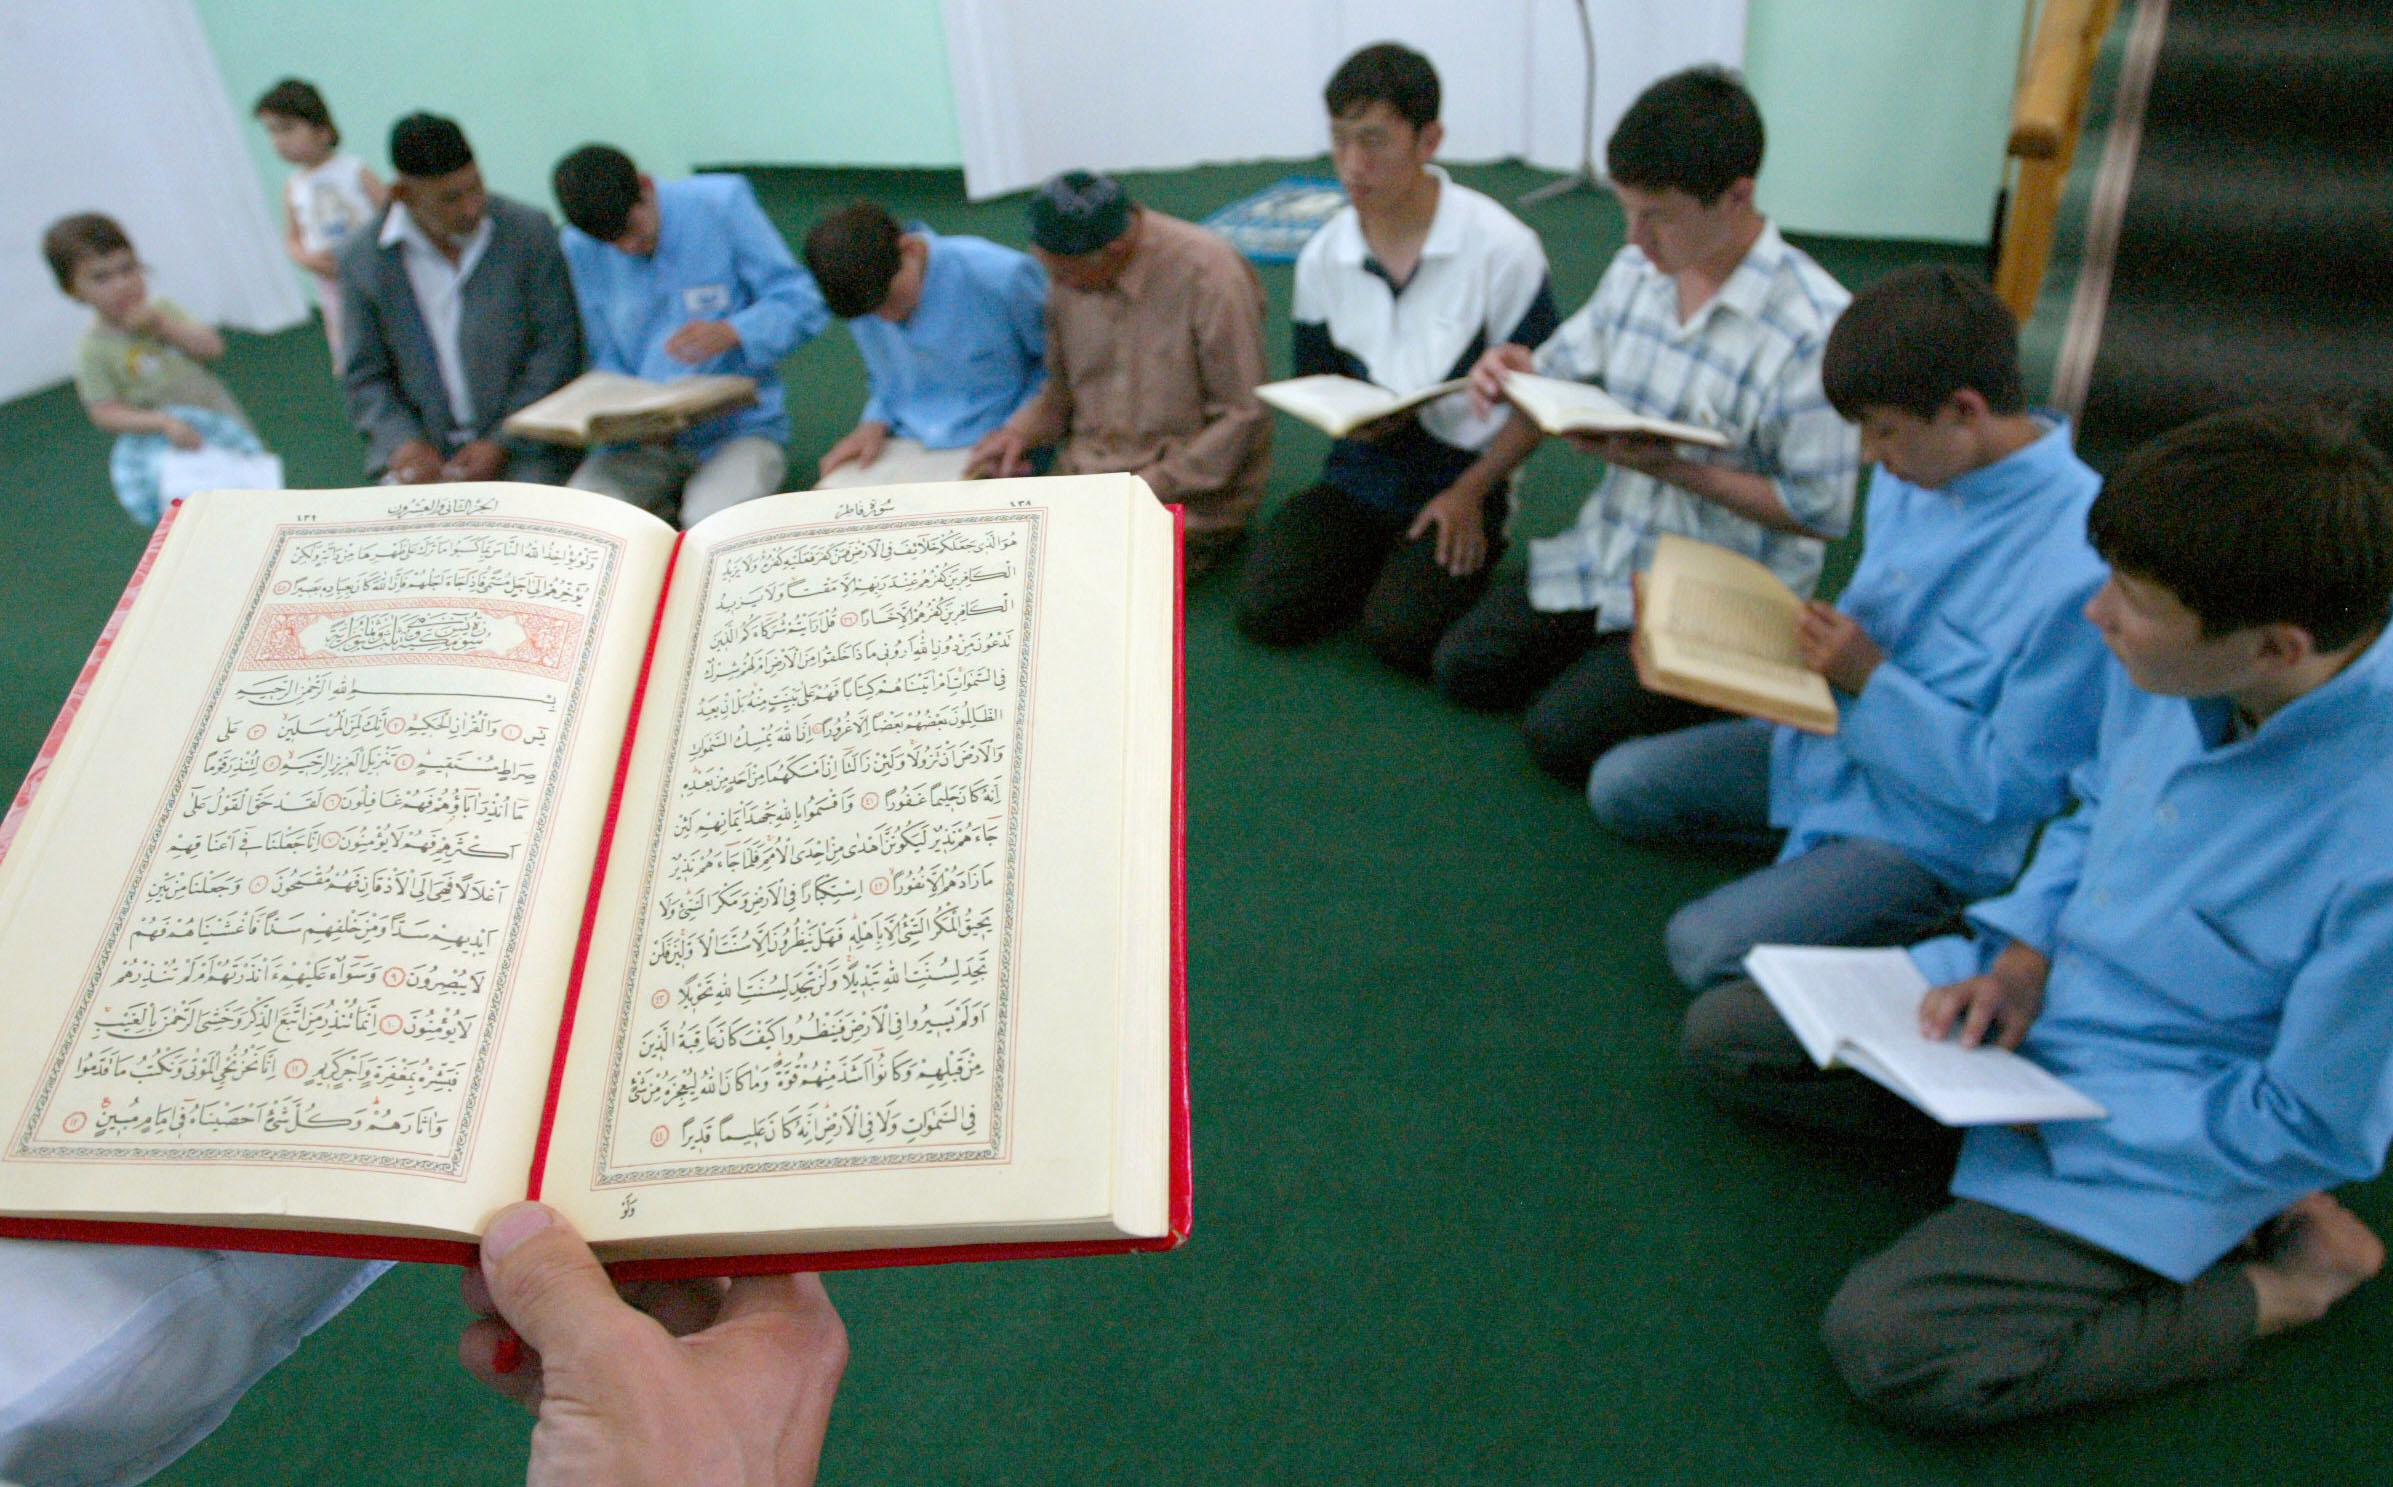 ٤٣٨ سُورَةُ فَاطِرٍ
هُوَ الَّذِي جَعَلَكُمْ خَلَٓائِفَ فِي الْاَرْضِ فَمَنْ كَفَرَ فَعَلَيْهِ كُفْرُهُ وَلَا يَزِيدُ
الْكَافِرِينَ كُفْرُهُمْ عِنْدَ رَبِّهِمْ اِلَّا مَقْتًا وَلَا يَزِيدُ
الْكَافِرِينَ كُفْرُهُمْ اِلَّا خَسَارًا ٣٩ قُلْ اَرَاَيْتُمْ شُرَكَٓاءَكُمُ الَّذِينَ
تَدْعُونَ مِنْ دُونِ اللّٰهِ اَرُونِي مَاذَا خَلَقُوا مِنَ الْاَرْضِ اَمْ لَهُمْ شِرْكٌ
فِي السَّمٰوَاتِ اَمْ اٰتَيْنَاهُمْ كِتَابًا فَهُمْ عَلٰى بَيِّنَتٍ مِنْهُ بَلْ اِنْ يَعِدُ
الظَّالِمُونَ بَعْضُهُمْ بَعْضًا اِلَّا غُرُورًا ٤٠ اِنَّ اللّٰهَ يُمْسِكُ السَّمٰوَاتِ
وَالْاَرْضَ اَنْ تَزُولَا وَلَئِنْ زَالَتَٓا اِنْ اَمْسَكَهُمَا مِنْ اَحَدٍ مِنْ بَعْدِهِ
اِنَّهُ كَانَ حَلِيمًا غَفُورًا ٤١ وَاَقْسَمُوا بِاللّٰهِ جَهْدَ اَيْمَانِهِمْ لَئِنْ
جَٓاءَهُمْ نَذِيرٌ لَيَكُونُنَّ اَهْدٰى مِنْ اِحْدَى الْاُمَمِ فَلَمَّا جَٓاءَهُمْ نَذِيرٌ
مَا زَادَهُمْ اِلَّا نُفُورًا ٤٢ اِسْتِكْبَارًا فِي الْاَرْضِ وَمَكْرَ السَّيِّئِ وَلَا
يَحِيقُ الْمَكْرُ السَّيِّئُ اِلَّا بِاَهْلِهِ فَهَلْ يَنْظُرُونَ اِلَّا سُنَّتَ الْاَوَّلِينَ فَلَنْ
تَجِدَ لِسُنَّتِ اللّٰهِ تَبْدِيلًا وَلَنْ تَجِدَ لِسُنَّتِ اللّٰهِ تَحْوِيلًا ٤٣
اَوَلَمْ يَسِيرُوا فِي الْاَرْضِ فَيَنْظُرُوا كَيْفَ كَانَ عَاقِبَةُ الَّذِينَ
مِنْ قَبْلِهِمْ وَكَانُٓوا اَشَدَّ مِنْهُمْ قُوَّةً وَمَا كَانَ اللّٰهُ لِيُعْجِزَهُ مِنْ شَيْءٍ
فِي السَّمٰوَاتِ وَلَا فِي الْاَرْضِ اِنَّهُ كَانَ عَلِيمًا قَدِيرًا ٤٤
وَلَوْ
اَلْجُزْءُ الثَّانِي وَالْعِشْرُونَ ٤٣٩
وَلَوْ يُؤَاخِذُ اللّٰهُ النَّاسَ بِمَا كَسَبُوا مَا تَرَكَ عَلٰى ظَهْرِهَا مِنْ دَٓابَّةٍ وَلٰكِنْ
يُؤَخِّرُهُمْ اِلٰٓى اَجَلٍ مُسَمًّى فَاِذَا جَٓاءَ اَجَلُهُمْ فَاِنَّ اللّٰهَ كَانَ بِعِبَادِهِ بَصِيرًا ٤٥
بِسْمِ اللّٰهِ الرَّحْمٰنِ الرَّحِيمِ
يٰسٓ ١ وَالْقُرْاٰنِ الْحَكِيمِ ٢ اِنَّكَ لَمِنَ الْمُرْسَلِينَ ٣ عَلٰى
صِرَاطٍ مُسْتَقِيمٍ ٤ تَنْزِيلَ الْعَزِيزِ الرَّحِيمِ ٥ لِتُنْذِرَ قَوْمًا
مَٓا اُنْذِرَ اٰبَٓاؤُهُمْ فَهُمْ غَافِلُونَ ٦ لَقَدْ حَقَّ الْقَوْلُ عَلٰٓى
اَكْثَرِهِمْ فَهُمْ لَا يُؤْمِنُونَ ٧ اِنَّا جَعَلْنَا فِٓي اَعْنَاقِهِمْ
اَغْلَالًا فَهِيَ اِلَى الْاَذْقَانِ فَهُمْ مُقْمَحُونَ ٨ وَجَعَلْنَا مِنْ بَيْنِ
اَيْدِيهِمْ سَدًّا وَمِنْ خَلْفِهِمْ سَدًّا فَاَغْشَيْنَاهُمْ فَهُمْ
لَا يُبْصِرُونَ ٩ وَسَوَٓاءٌ عَلَيْهِمْ ءَاَنْذَرْتَهُمْ اَمْ لَمْ تُنْذِرْهُمْ
لَا يُؤْمِنُونَ ١٠ اِنَّمَا تُنْذِرُ مَنِ اتَّبَعَ الذِّكْرَ وَخَشِيَ الرَّحْمٰنَ بِالْغَيْبِ
فَبَشِّرْهُ بِمَغْفِرَةٍ وَاَجْرٍ كَرِيمٍ ١١ اِنَّا نَحْنُ نُحْيِ الْمَوْتٰى وَنَكْتُبُ مَا قَدَّمُوا
وَاٰثَارَهُمْ وَكُلَّ شَيْءٍ اَحْصَيْنَاهُ فِٓي اِمَامٍ مُبِينٍ ١٢